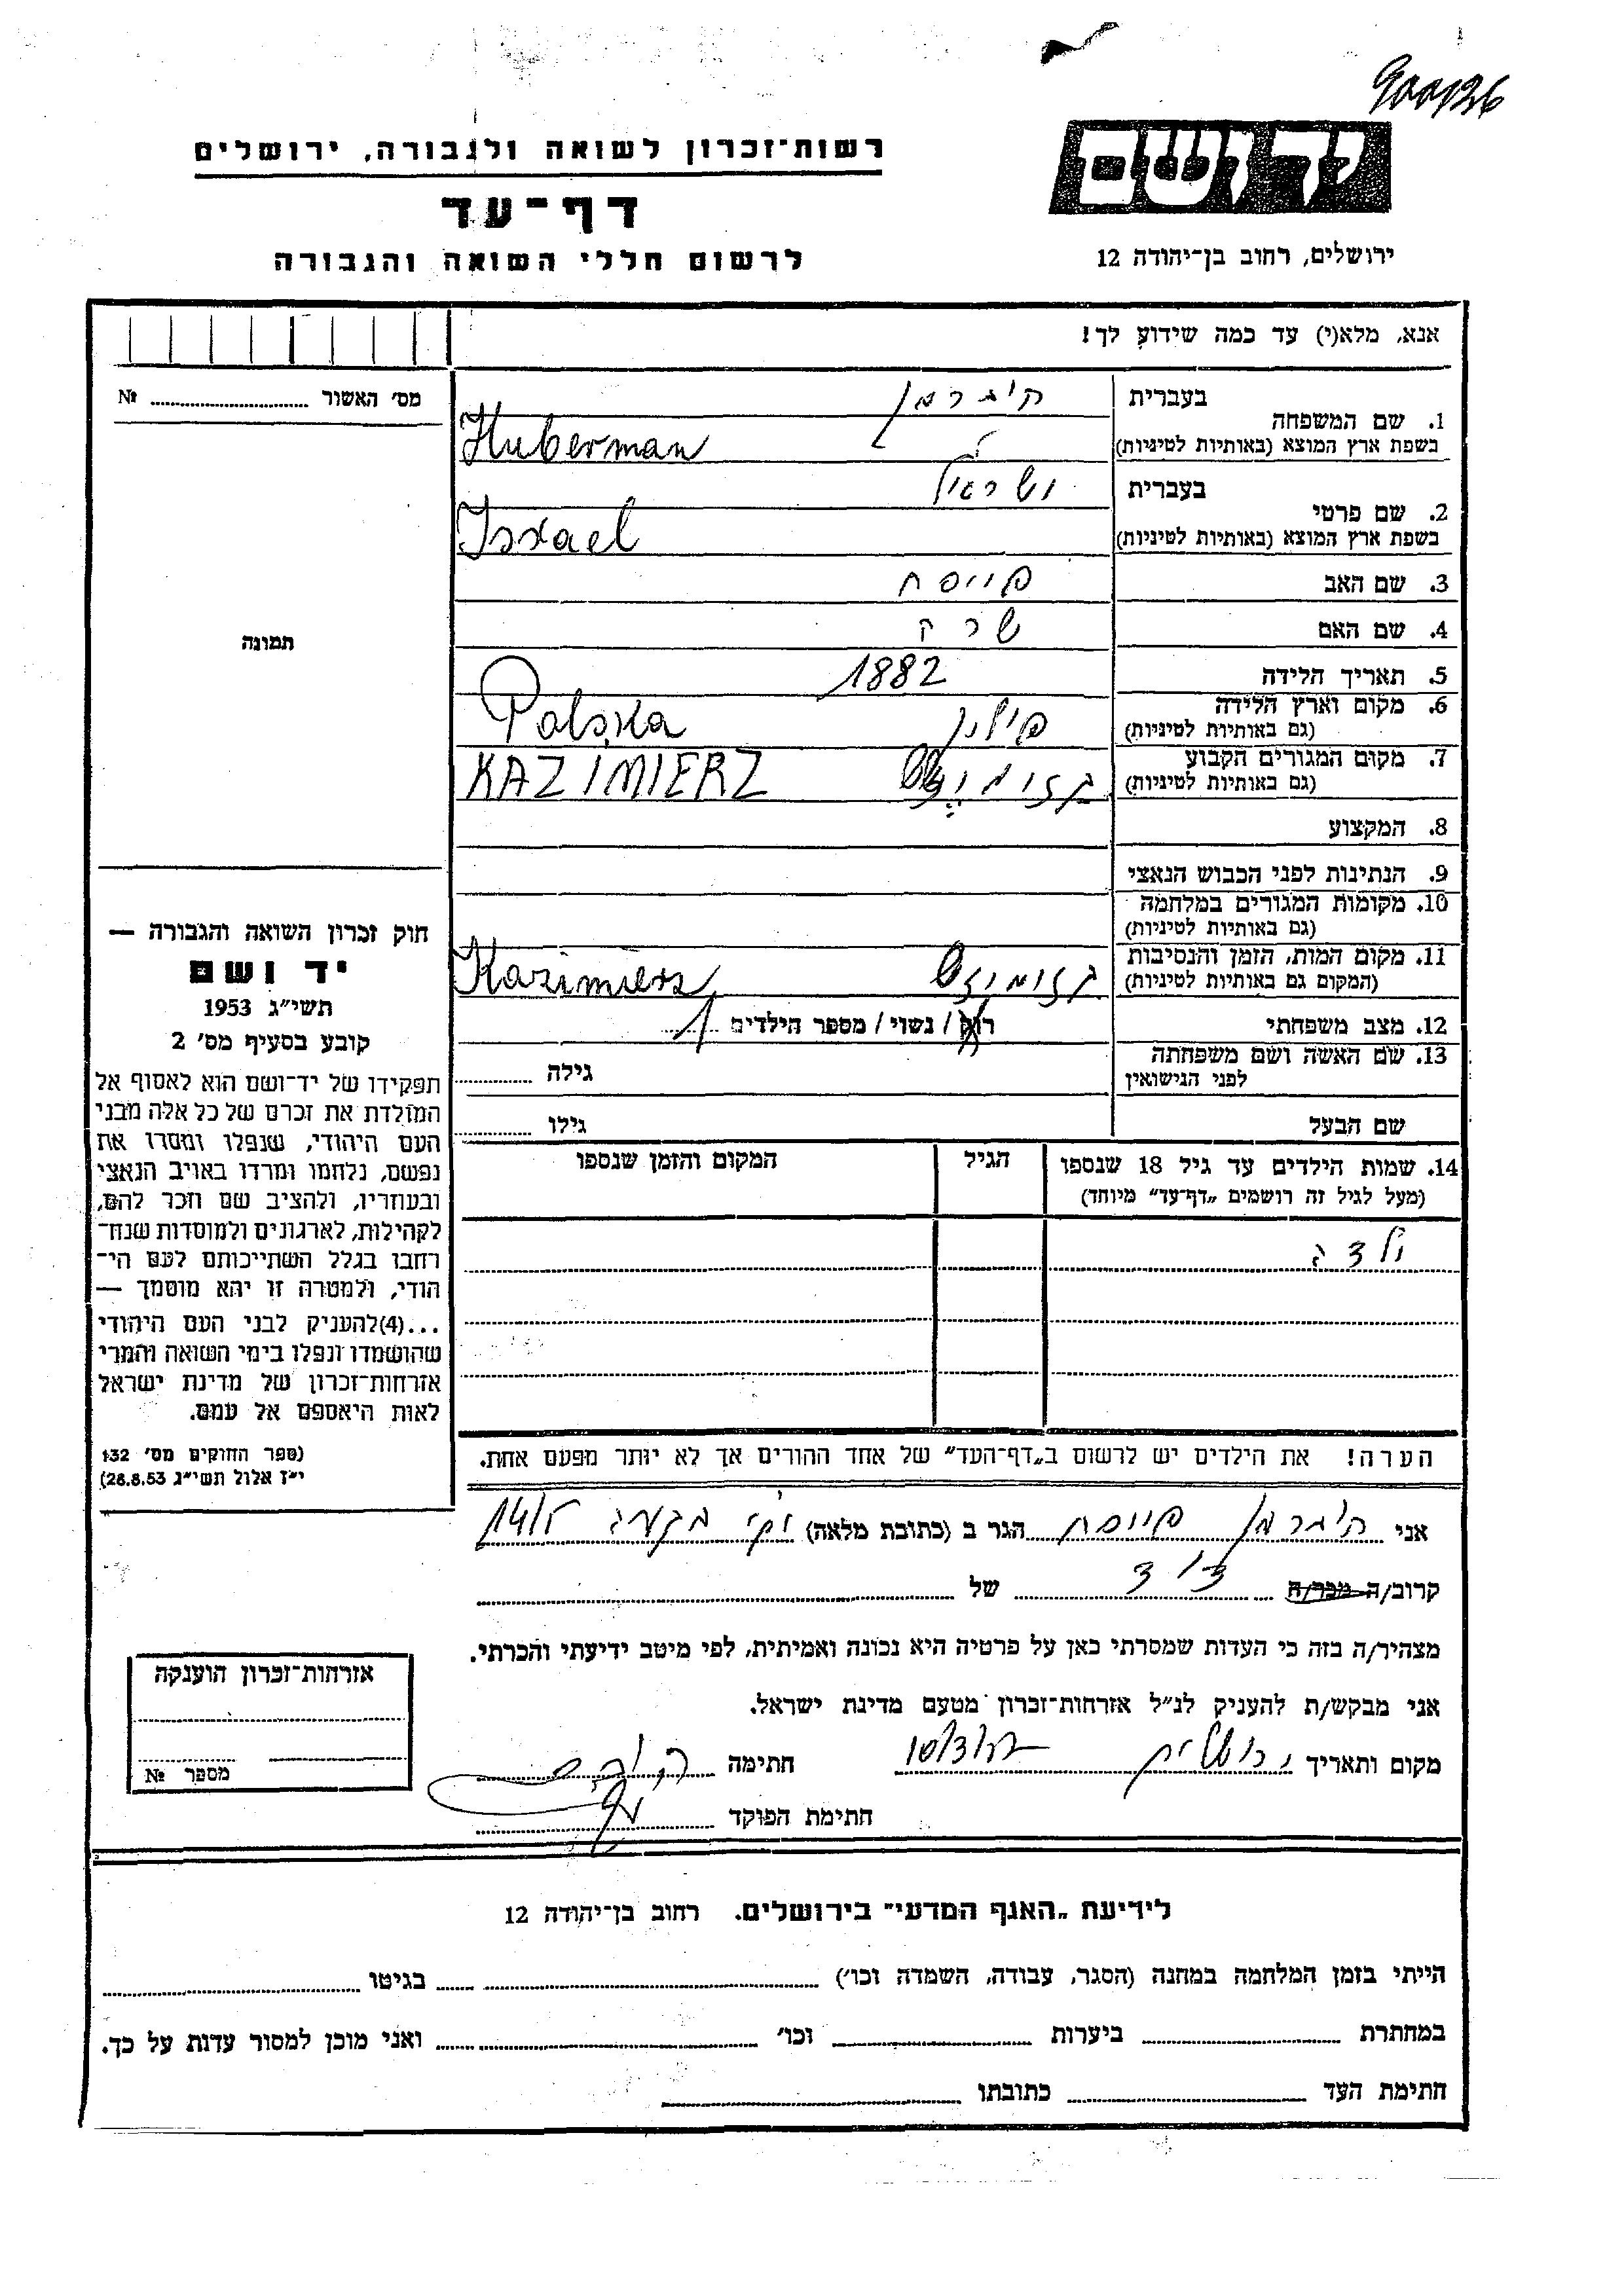 900126
רשות־זכרון לשואה ולגבורה, ירושלים
יד ושם
דף־עד
לרשום חללי השואה והגבורה
ירושלים, רחוב בן־יהודה 12
אנא, מלא(י) עד כמה שידוע לך!
מס׳ האשור № 
בעברית
1. שם המשפחה
בשפת ארץ המוצא (באותיות לטיניות) Huberman
בעברית ישראל
2. שם פרטי
בשפת ארץ המוצא (באותיות לטיניות) Israel
3. שם האב פייסח
4. שם האם שרה
5. תאריך הלידה 1882
6. מקום וארץ הלידה פולין Polska
(גם באותיות לטיניות)
7. מקום המגורים הקבוע KAZIMIERZ
(גם באותיות לטיניות)
8. המקצוע
9. הנתינות לפני הכבוש הנאצי
10. מקומות המגורים במלחמה
(גם באותיות לטיניות)
11. מקום המות, הזמן והנסיבות Kazimierz
(המקום גם באותיות לטיניות)
12. מצב משפחתי רוק / נשוי / מספר הילדים 1
13. שם האשה ושם משפחתה גילה
לפני הנישואין
שם הבעל גילו
14. שמות הילדים עד גיל 18 שנספו הגיל המקום והזמן שנספו
(מעל לגיל זה רושמים „דף־עד״ מיוחד)
הערה! את הילדים יש לרשום ב„דף־העד״ של אחד ההורים אך לא יותר מפעם אחת.
תמונה
חוק זכרון השואה והגבורה —
יד ושם
תשי״ג 1953
קובע בסעיף מס׳ 2
תפקידו של יד־ושם הוא לאסוף אל
המולדת את זכרם של כל אלה מבני
העם היהודי, שנפלו ומסרו את
נפשם, נלחמו ומרדו באויב הנאצי
ובעוזריו, ולהציב שם וזכר להם,
לקהילות, לארגונים ולמוסדות שנח־
רחבו בגלל השתייכותם לעם הי־
הודי, ולמטרה זו יהא מוסמך —
...(4)להעניק לבני העם היהודי
שהושמדו ונפלו בימי השואה והמרי
אזרחות־זכרון של מדינת ישראל
לאות היאספם אל עמם.
(ספר החוקים מס׳ 132
י״ז אלול תשי״ג 28.8.53)
אני הוברמן פייסח הגר ב (כתובת מלאה)
קרוב/ה מכר/ה דוד של
מצהיר/ה בזה כי העדות שמסרתי כאן על פרטיה היא נכונה ואמיתית, לפי מיטב ידיעתי והכרתי.
אני מבקש/ת להעניק לנ״ל אזרחות־זכרון מטעם מדינת ישראל.
מקום ותאריך ירושלים חתימה
חתימת הפוקד
אזרחות־זכרון הוענקה
מספר №
לידיעת „האגף המדעי״ בירושלים. רחוב בן־יהודה 12
הייתי בזמן המלחמה במחנה (הסגר, עבודה, השמדה וכו׳) בגיטו
במחתרת ביערות וכו׳ ואני מוכן למסור עדות על כך.
חתימת העד כתובתו